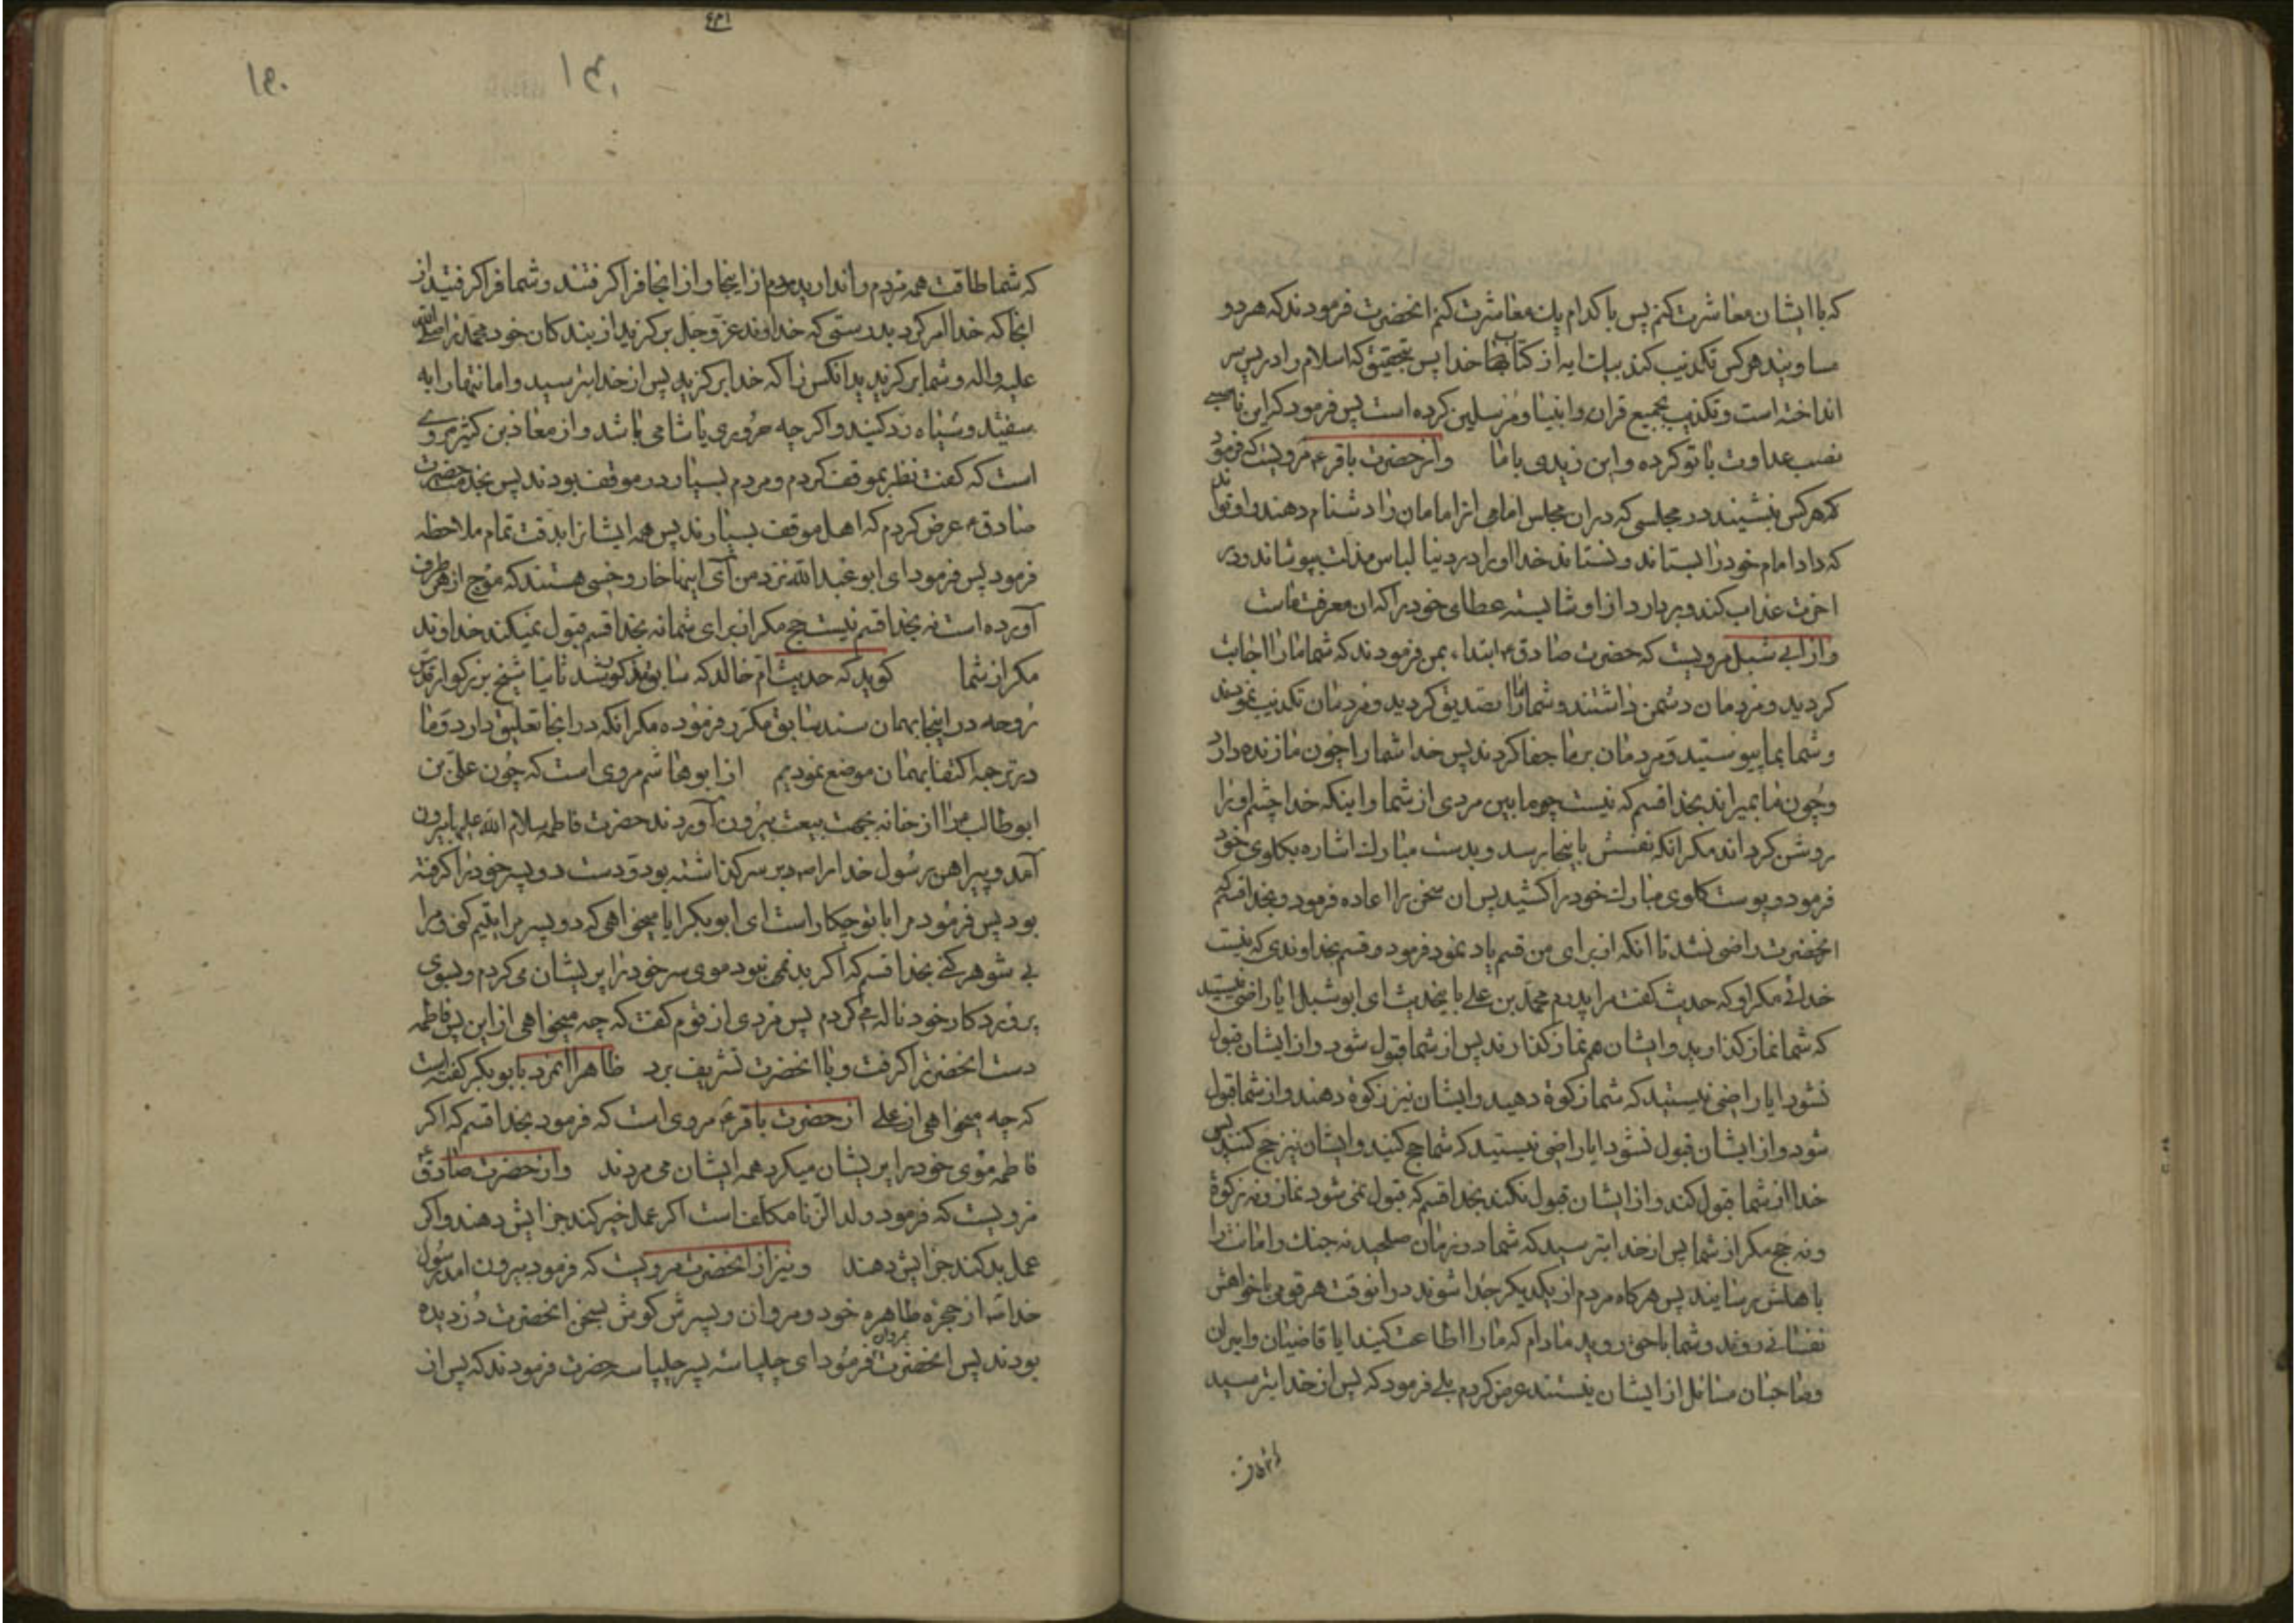 که با ایشان معاشرت کنم پس با کدام یك معاشرت کنم انحضرت فرمودند که هر دو
مساویند هر کس تکذیب کند بیك ایه از کتابهای خدا پس بتحقیق که اسلام را در پس سر
انداخته است و تکذیب بجمیع قران و انبیا و مرسلین کرده است پس فرمود که این ناصبی
نصب عداوت با تو کرده و این زیدی با ما و از حضرت باقر ع مرویست که فرمود
که هر کس بنشیند در مجلسی که در ان مجلس امامی از امامان را دشنام دهند و او تواند
که داد امام خود را بستاند و نستاند خدا او را در دنیا لباس مذلت بپوشاند و در
اخرت عذاب کند و بردارد از او شایسته عطای خود را که ان معرفت ماست
و از ابی شبل مرویست که حضرت صادق ع ابتداء بمن فرمودند که شما ما را اجابت
کردید و مردمان دشمن داشتند و شما ما را تصدیق کردید و مردمان تکذیب نمودند
و شما بما پیوستید و مردمان بر ما جفا کردند پس خدا شما را چون ما زنده دارد
و چون ما بمیراند بخدا قسم که نیست چو ما بین مردی از شما و اینکه خدا چشم او را
روشن کرداند مکر انکه نفسش باینجا برسد و بدست مبارك اشاره بکلوی خود
فرمود و پوست کلوی مبارك خود را کشید پس ان سخن را اعاده فرمود و بخدا قسم که
انحضرت راضی نشد تا انکه از برای من قسم یاد نمود فرمود و قسم بخداوندی که نیست
خدائی مکر او که حدیث کفت مرا پدرم محمد بن علی باینحدیث ای ابو شبل ایا راضی نیستید
که شما نماز کذارید و ایشان هم نماز کذارند پس از شما قبول شود و از ایشان قبول
نشود ایا راضی نیستید که شما زکوة دهید و ایشان نیز زکوة دهند و از شما قبول
شود و از ایشان قبول نشود ایا راضی نیستید که شما حج کنید و ایشان نیز حج کنند پس
خدا از شما قبول کند و از ایشان قبول نکند بخدا قسم که قبول نمی شود نماز و نه زکوة
و نه حج مکر از شما پس از خدا بترسید که شما در زمان صلحید نه جنك و امانت را
باهلش برسانید پس هر کاه مردم از یکدیکر جدا شوند در انوقت هر قومی با خواهش
نفسانی روند و شما با حق روید مادام که ما را اطاعت کنید ایا قاضیان و امیران
و صاحبان مسائل از ایشان نیستند عرض کردم بلی فرمود که پس از خدا بترسید
۱۵۰
۱۴۰
که شما طاقت همه مردم را ندارید مردم از اینجا و از انجا فرا کرفتند و شما فرا کرفتید از
انجا که خدا امر کرد بدرستی که خداوند عز و جل بر کزید از بندکان خود محمد را صلی الله
علیه و اله و شما بر کزیدید انکس را که خدا بر کزید پس از خدا بترسید و امانتها را به
سفید و سیاه رد کنید و اکر چه حروری یا شامی باشد و از معاذ بن کثیر مروی
است که کفت نظر بموقف کردم و مردم بسیار در موقف بودند پس بخدمت حضرت
صادق ع عرض کردم که اهل موقف بسیارند پس همه ایشانرا بدقت تمام ملاحظه
فرمود پس فرمود ای ابو عبد الله نزد من آی اینها خار و خسی هستند که موج از هر طرف
آورده است نه بخدا قسم نیست حج مکر از برای شما نه بخدا قسم قبول نمیکند خداوند
مکر از شما کوید که حدیث ام خالد که سابق مذکور شد ثانیا شیخ بزرکوار قدس
روحه در اینجا بهمان سند سابق مکرر فرموده مکر انکه در انجا تعلیق دارد و ما
در ترجمه اکتفا بهمان موضع نمودیم از ابو هاشم مروی است که چون علی بن
ابو طالب را از خانه بجهت بیعت بیرون آوردند حضرت فاطمه سلام الله علیها بیرون
آمد و پیراهن رسول خدا را بر سر کذاشته بود و دست دو پسر خود را کرفته
بود پس فرمود مرا با تو چکار است ای ابو بکر ایا میخواهی که دو پسر مرا یتیم کنی و مرا
بی شوهر کنی بخدا قسم که اکر بد نمی نبود موی سر خود را پریشان می کردم و بسوی
پروردکار خود ناله می کردم پس مردی از قوم کفت که چه میخواهی از این پس فاطمه
دست انحضرترا کرفت و با انحضرت تشریف برد ظاهرا انمرد بابو بکر کفته است
که چه میخواهی از علی از حضرت باقر ع مروی است که فرمود بخدا قسم که اکر
فاطمه موی خود را پریشان میکرد همه ایشان می مردند و از حضرت صادق ع
مرویست که فرمود ولد الزنا مکلف است اکر عمل خیر کند جزایش دهند و اکر
عمل بد کند جزایش دهند و نیز از انحضرت مرویست که فرمود بیرون امد رسول
خدا از حجره طاهره خود و مروان و پسرش کوش بسخن انحضرت دزدیده
بودند پس انحضرت فرمود ای چلپاسه پسر چلپاسه حضرت فرمودند که پس از ان